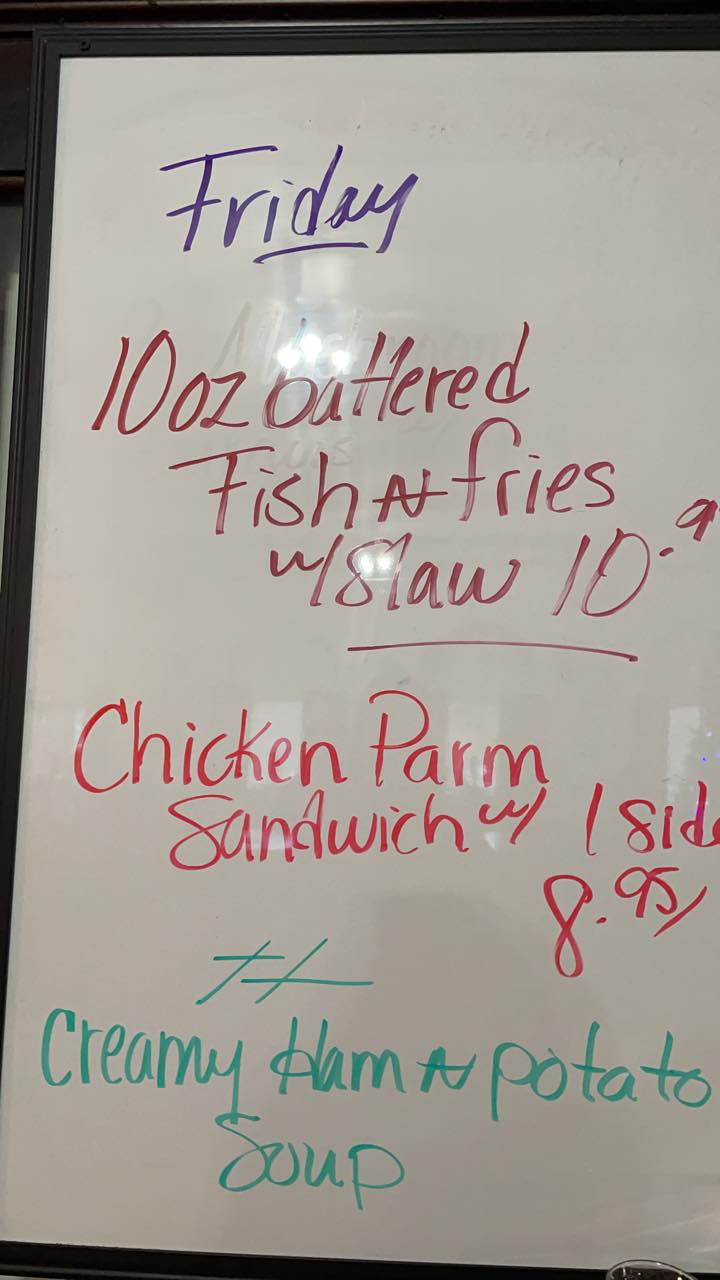 Friday
10oz battered
Fish N fries
w/Slaw 10.9
Chicken Parm
Sandwich w/ 1 Side
8.95
Creamy Ham N potato
Soup